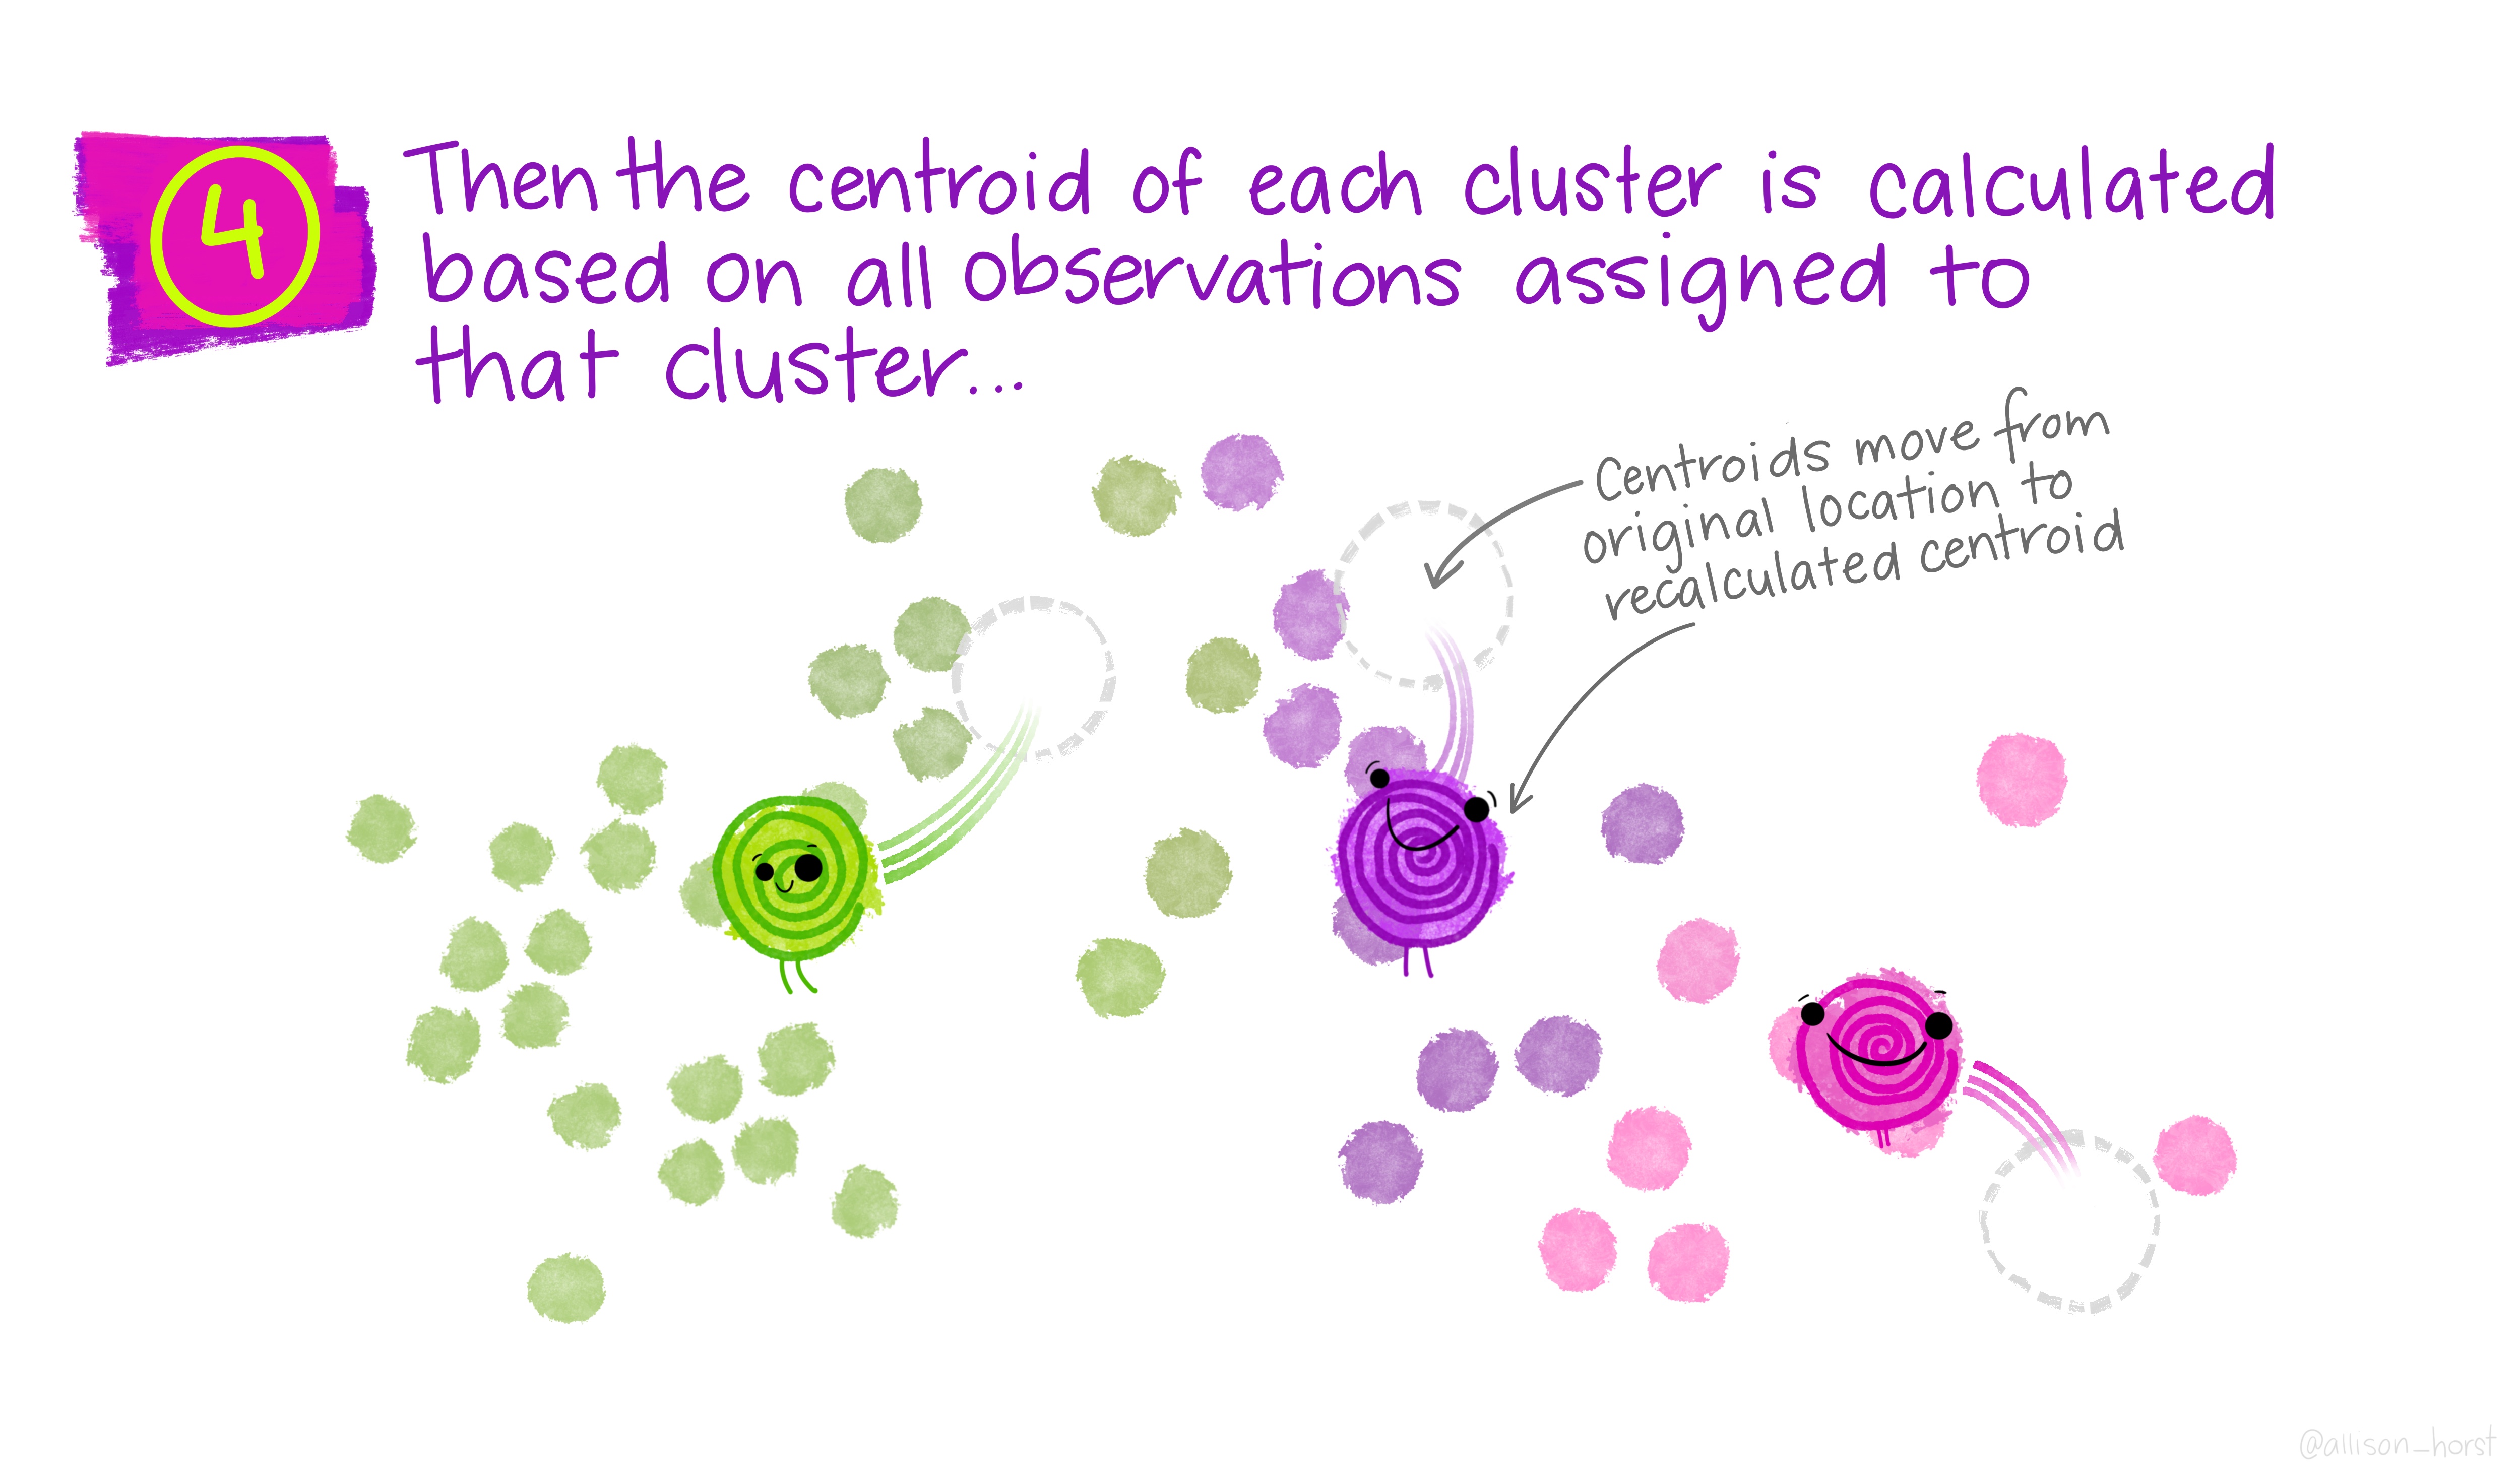 4
Then the centroid of each cluster is calculated
based on all observations assigned to
that cluster...
Centroids move from
original location to
recalculated centroid
@allison_horst